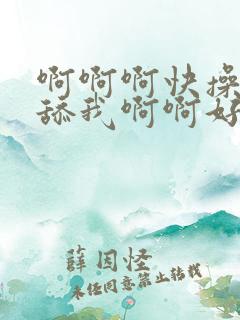 啊啊啊快操
舔我啊啊好
薛因怪
未经同意禁止转载